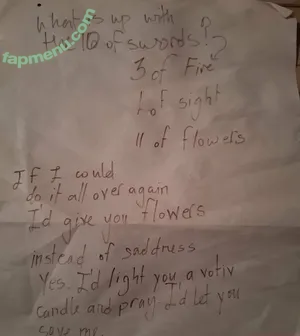 What's up with
the 10 of swords?
fapmenu.com
3 of Fire
1 of sight
11 of flowers
If I could
do it all over again
I'd give you flowers
instead of saddness
Yes I'd light you a votiv
candle and pray I'd let you
save me.